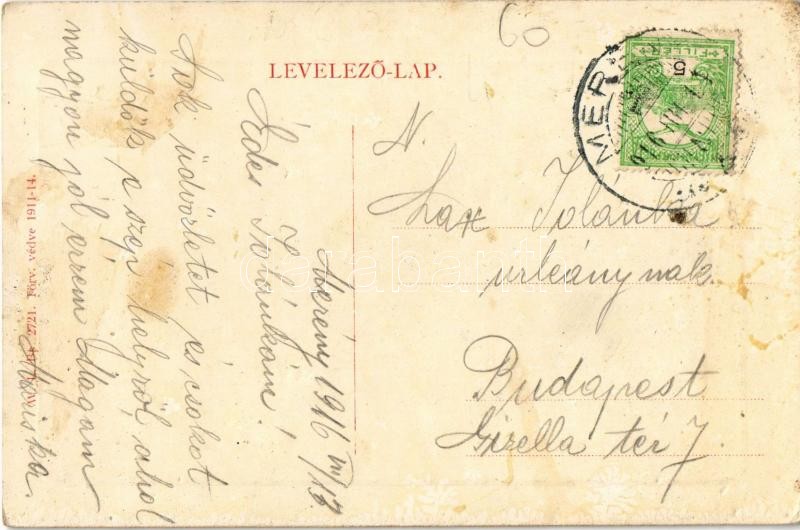 60
LEVELEZŐ-LAP.
FILLÉR
5
MER
Merény 1916 VIII/13
Édes Jolánkám!
Sok üdvözletet és csókot
küldök e szép helyről, ahol
nagyon jól érzem Magam
Mariska.
N.
Lax Jolánka
urleánynak
Budapest
Gizella tér 7
27721. Törv. védve 1911-14.
darabanth